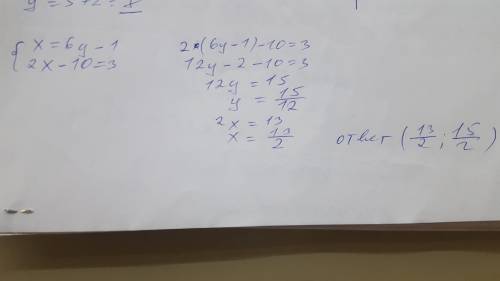 y = 5+2 =
{ x = 6y - 1
2x - 10 = 3
2*(6y-1)-10=3
12y-2-10=3
12y = 15
y = 15/12
2x = 13
x = 13/2
ответ (13/2; 15/2)